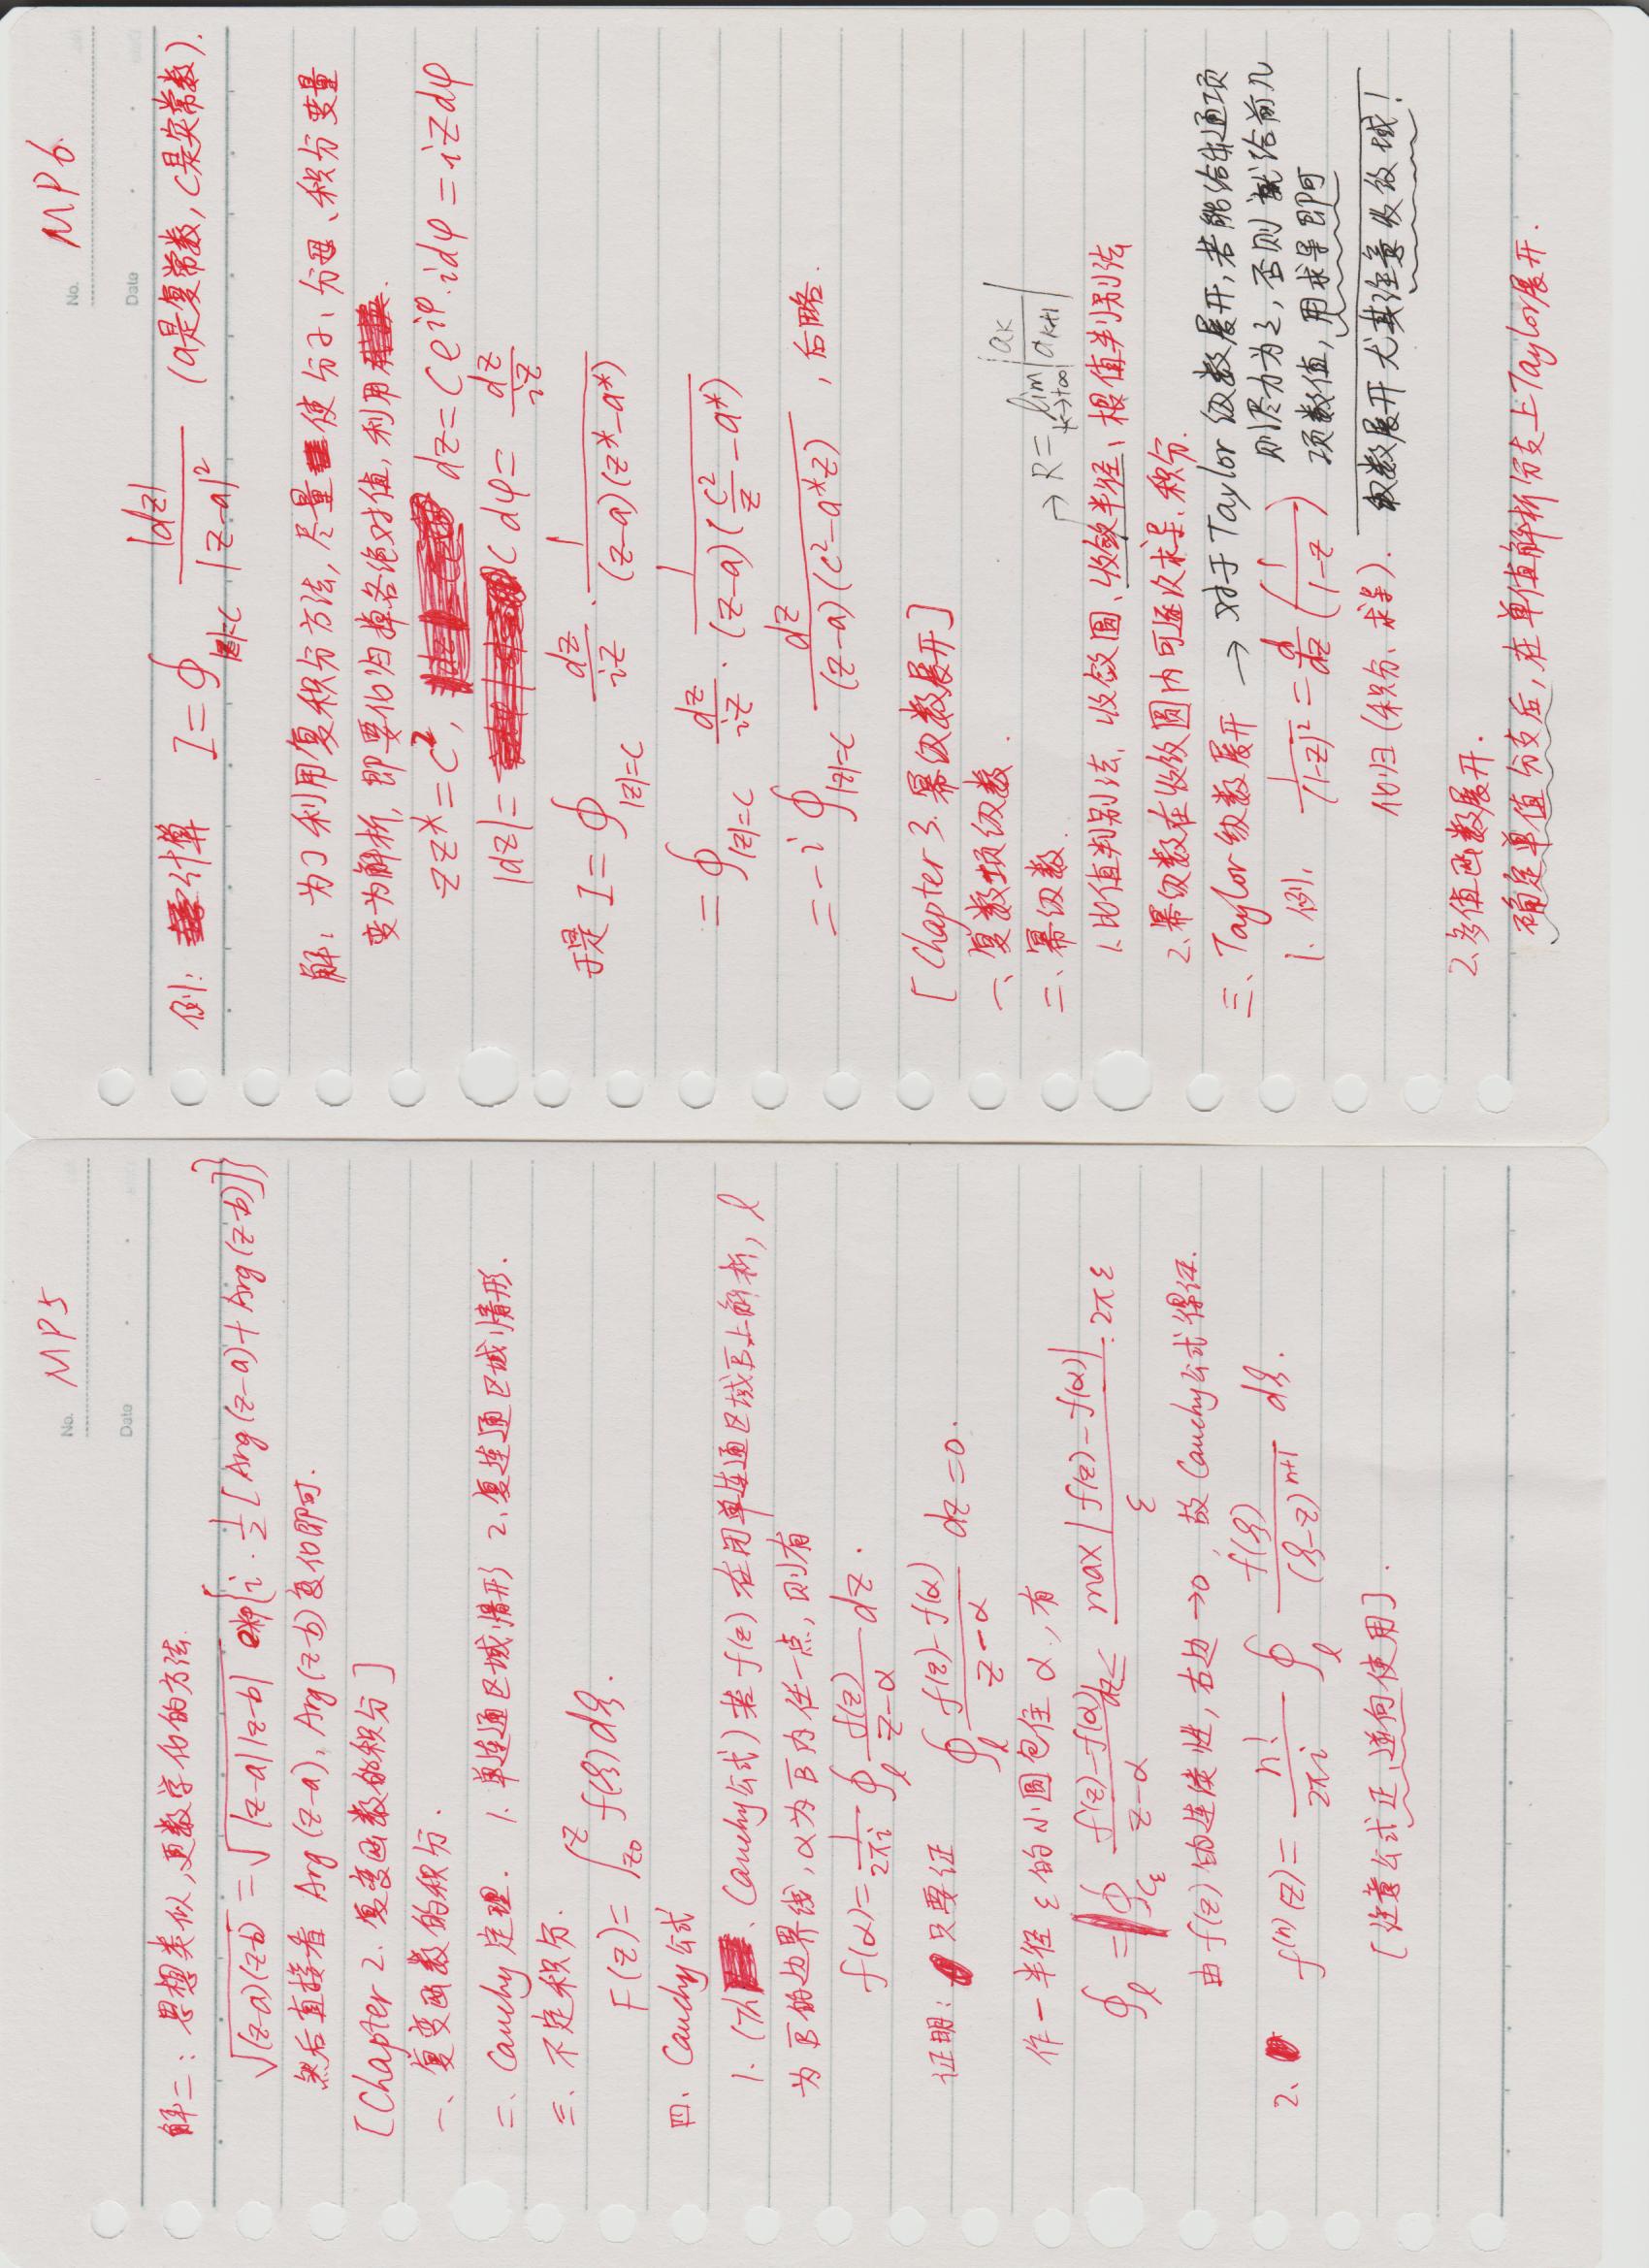 No. MP5
Date
解二：思想类似，更数学化的方法.
√(z-a)(z-b) = √|z-a||z-b| exp{i·1/2[Arg(z-a)+Arg(z-b)]}
然后直接看 Arg(z-a), Arg(z-b)变化即可.
[Chapter 2. 复变函数的积分]
一、复变函数的积分.
二、Cauchy定理. 1. 单连通区域情形 2. 复连通区域情形.
三、不定积分.
F(z)=∫_{z0}^{z} f(ξ)dξ.
四、Cauchy公式
1. (Th、Cauchy公式) 若f(z)在闭单连通区域B̄上解析, l
为B̄的边界线, α为B̄内任一点, 则有
f(α)=1/(2πi) ∮_l f(z)/(z-α) dz.
证明: 只要证 ∮_l (f(z)-f(α))/(z-α) dz=0.
作一半径ε的小圆包住α, 有
∮_l = ∮_{Cε} (f(z)-f(α))/(z-α) dz ≤ max|f(z)-f(α)|/ε · 2πε
由f(z)的连续性, 右边→0, 故Cauchy公式得证.
2. f^(n)(z)= n!/(2πi) ∮_l f(ξ)/(ξ-z)^{n+1} dξ.
[注意公式正、逆向使用].
No. MP6.
Date
例: 计算 I=∮_{|z|=C} |dz|/|z-a|² (a是复常数, C是实常数).
解: 为了利用复积分方法, 尽量使分子、分母、积分变量
变为解析, 即要化归掉各绝对值, 利用
zz*=C², dz=Ce^{iφ}·idφ=izdφ
|dz|= C dφ= dz/(iz)
于是 I=∮_{|z|=C} dz/(iz) · 1/((z-a)(z*-a*))
=∮_{|z|=C} dz/(iz) · 1/((z-a)(C²/z-a*))
=-i∮_{|z|=C} dz/((z-a)(C²-a*z)), 后略.
[Chapter 3. 幂级数展开]
一、复数项级数.
二、幂级数. → R=lim_{k→+∞}|a_k/a_{k+1}|
1. 比值判别法, 收敛圆、收敛半径、根值判别法
2. 幂级数在收敛圆内可逐次求导、积分.
三、Taylor级数展开 → 对于Taylor级数展开, 若能给出通项
则尽力为之, 否则就给前几
项数值, 用求导即可
1. 例, 1/(1-z)²=d/dz(1/(1-z))
化归(积分、求导). 级数展开尤其注意收敛域!
2. 多值函数展开.
确定单值分支后, 在单值解析分支上Taylor展开.